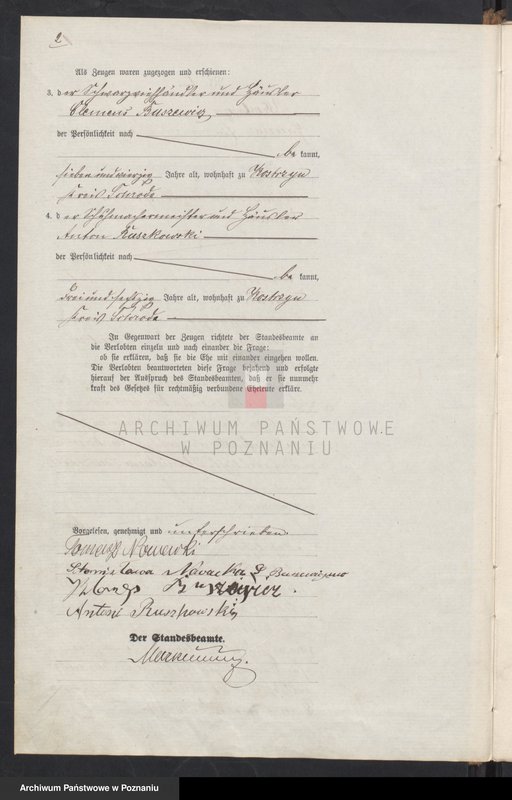 2
Als Zeugen waren zugezogen und erschienen:
3. der Schwarzviehhändler und Häusler
Clemens Buszewicz
der Persönlichkeit nach
be kannt,
sieben und vierzig Jahre alt, wohnhaft zu Kostrzyn
Kreis Schroda
4. der Schuhmachermeister und Häusler
Anton Ruszkowski
der Persönlichkeit nach
be kannt,
drei und sechzig Jahre alt, wohnhaft zu Kostrzyn
Kreis Schroda
In Gegenwart der Zeugen richtete der Standesbeamte an
die Verlobten einzeln und nach einander die Frage:
ob sie erklären, daß sie die Ehe mit einander eingehen wollen.
Die Verlobten beantworteten diese Frage bejahend und erfolgte
hierauf der Ausspruch des Standesbeamten, daß er sie nunmehr
kraft des Gesetzes für rechtmäßig verbundene Eheleute erkläre.
ARCHIWUM PAŃSTWOWE
W POZNANIU
Vorgelesen, genehmigt und unterschrieben
Tomasz Nowacki
Stanisława Nowacka
Antoni Ruszkowski
Der Standesbeamte.
Archiwum Państwowe w Poznaniu